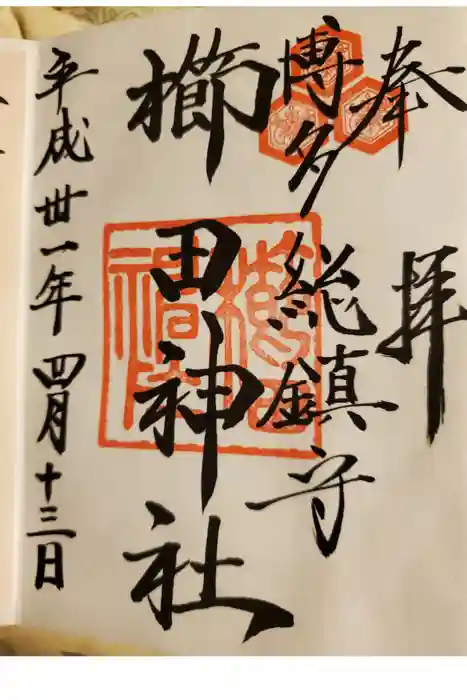 奉拝
博多総鎮守
櫛田神社
平成卅一年四月十三日